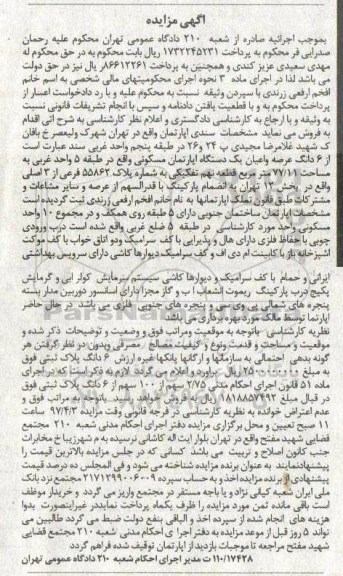 آگهی مزایده
بموجب اجرائیه صادره از شعبه ۲۱۰ دادگاه عمومی تهران محکوم علیه رحمان
صدرایی فر محکوم به پرداخت ۱۷۳۲۲۴۵۲۳۱ ریال بابت محکوم به در حق محکوم له
مهدی سعیدی عزیز کندی و همچنین به پرداخت ۸۶۶۱۲۲۶۱ ریال نیز در حق دولت
می باشد لذا در اجرای ماده ۳ نحوه اجرای محکومیتهای مالی شخصی به اسم خانم
افخم ارفعی زرندی با سپردن وثیقه نسبت به محکوم علیه و با رد دادخواست اعسار از
پرداخت محکوم به و با قطعیت یافتن دادنامه و سپس با انجام تشریفات قانونی نسبت
به وثیقه و با ارجاع به کارشناسی دادگستری و اعلام نظر کارشناسی به شرح اتی اقدام
به فروش می نماید مشخصات سندی اپارتمان واقع در تهران شهرک ولیعصر خ بافان
ک شهید غلامرضا مجیدی پ ۲۴ و ۲۶ در طبقه پنجم واحد غربی سند عبارت است
از ۶ دانگ عرصه واعیان یک دستگاه اپارتمان مسکونی واقع در طبقه ۵ واحد غربی به
مساحت ۷۷/۱۱ متر مربع قطعه نهم تفکیکی به شماره پلاک ۵۵۸۶۲ فرعی از ۳ اصلی
واقع در بخش ۱۲ تهران به انضمام پارکینگ با قدرالسهم از عرصه و سایر مشاعات و
مشترکات طبق قانون تملک اپارتمانها به نام خانم افخم ارفعی زرندی ثبت گردیده است
مشخصات اپارتمان ساختمان جنوبی دارای ۵ طبقه روی همکف و در مجموع ۱۰ واحد
مسکونی واحد مورد کارشناسی در طبقه ۵ ضلع غربی واقع شده است درب ورودی
چوبی با حفاظ فلزی دارای هال و پذیرایی با کف سرامیک ودو اتاق خواب با کف موکت
اشپزخانه باز با کابینت ام دی اف و کف سرامیک دیوارها کاشی دارای سرویس بهداشتی
ایرانی و حمام با کف سرامیک و دیوارها کاشی سیستم سرمایش کولر ابی و گرمایش
پکیج درب پارکینگ ریموت انشعاب اب و گاز مجزا دارای اسانسور دوربین مدار بسته
پنجره های شمالی یو پی وی سی و پنجره های جنوبی فلزی می باشد در حال حاضر
اپارتما توسط مالک مورد بهره برداری می باشد
نظریه کارشناسی باتوجه به موقعیت ومراتب فوق و وضعیت و توضیحات ذکر شده و
موقعیت و مساحت و قدمت ونوع و کیفیت مصالح مصرفی وبدون در نظر گرفتن هر
گونه بدهی احتمالی به سازمانها و ارگانها بانکها غیره ارزش ۶ دانگ پلاک ثبتی فوق
به مبلغ ریال براورد و اعلام می گردد لازم به ذکر است که در اجرای
ماده ۵۱ قانون اجرای احکام مدنی ۲/۷۵ سهم از ۱۰۰ سهم از ۶ دانگ پلاک ثبتی فوق
در قبال مبلغ ۱۸۱۸۸۵۷۴۹۲ ریال به فروش خواهد رسید باتوجه به مراتب فوق و
عدم اعتراض خوانده به نظریه کارشناسی در فرجه قانونی وقت مزایده ۹۷/۴/۳ ساعت
۱۱ صبح تعیین و محل برگزاری مزایده دفتر اجرای احکام مدنی شعبه ۲۱۰ مجتمع
قضایی شهید مفتح واقع در تهران بلوار ایت اله کاشانی نرسیده به م شهرزیبا خ مخابرات
جنب کانون اصلاح و تربیت می باشد کسانی که در جلس مزایده بالاترین قیمت را
پیشنهادنمایند به عنوان برنده مزایده شناخته می شود و فی المجلس ده درصد قیمت
پیشنهادی از برنده مزایده اخذ و به حساب سپرده ۲۱۷۱۲۹۹۰۰۶۰۰۹ مجتمع نزد بانک
ملی ایران شعبه کیانی نژاد و یا باجه مستقر در مجتمع واریز می گردد و خریدار موظف
است باقی مانده ثمن مورد مزایده را ظرف یکماه پرداخت نماید در غیراینصورت بدوا
هزینه های انجام شده از سپرده اخذ و الباقی بنفع دولت ضبط می گردد طالبین می
تواند ۵ روز قبل از موعد مزایده به دفتر اجرا ی احکام مدنی شعبه ۲۱۰ مجتمع قضایی
شهید مفتح مراجعه تا موجبات بازدید از اپارتمان توقیف شده فراهم گردد
۱۱۰/۱۷۴۲۸ ت مدیر اجرای احکام شعبه ۲۱۰ دادگاه عمومی تهران